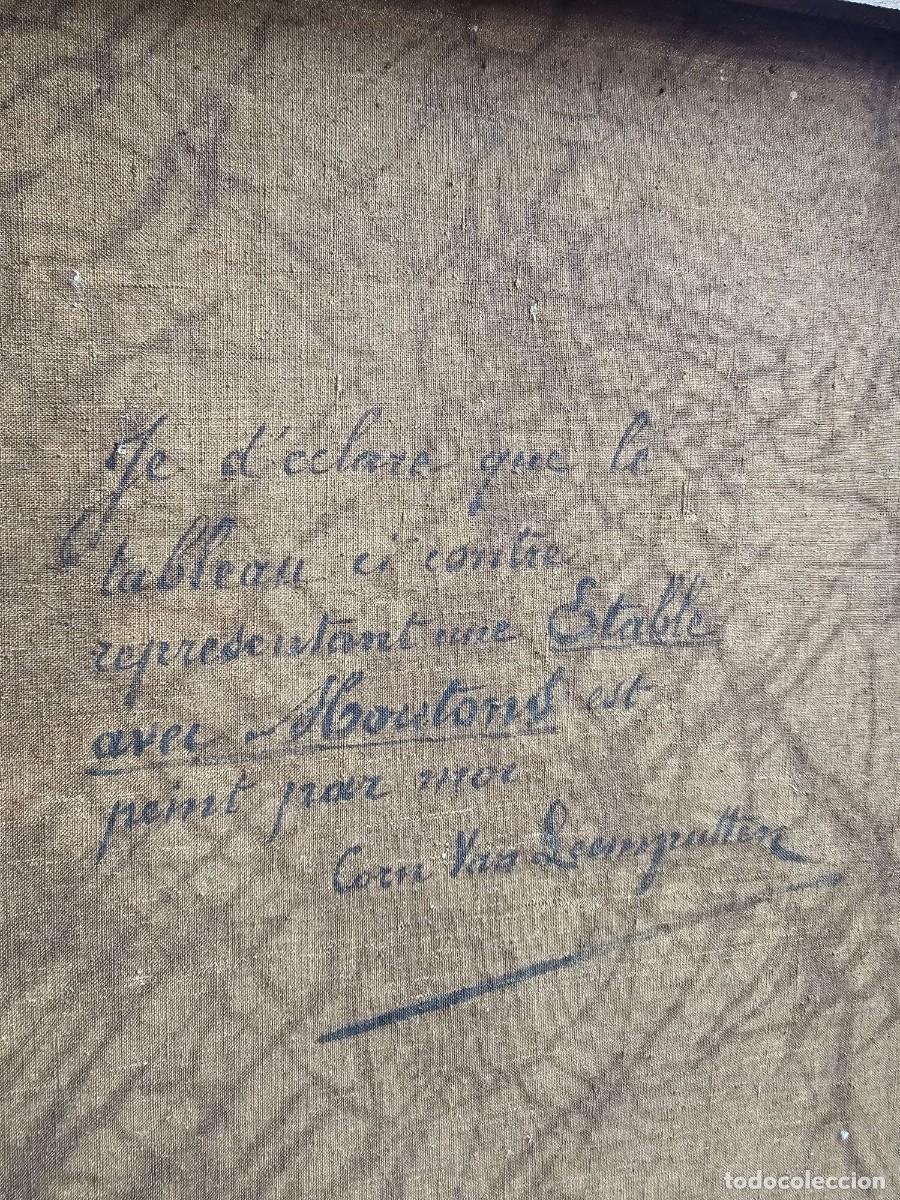 Je d'eclare que le
tableau ci contre
representant une Etable
avec Moutons est
peint par moi
Corn Van Leemputten
todocoleccion